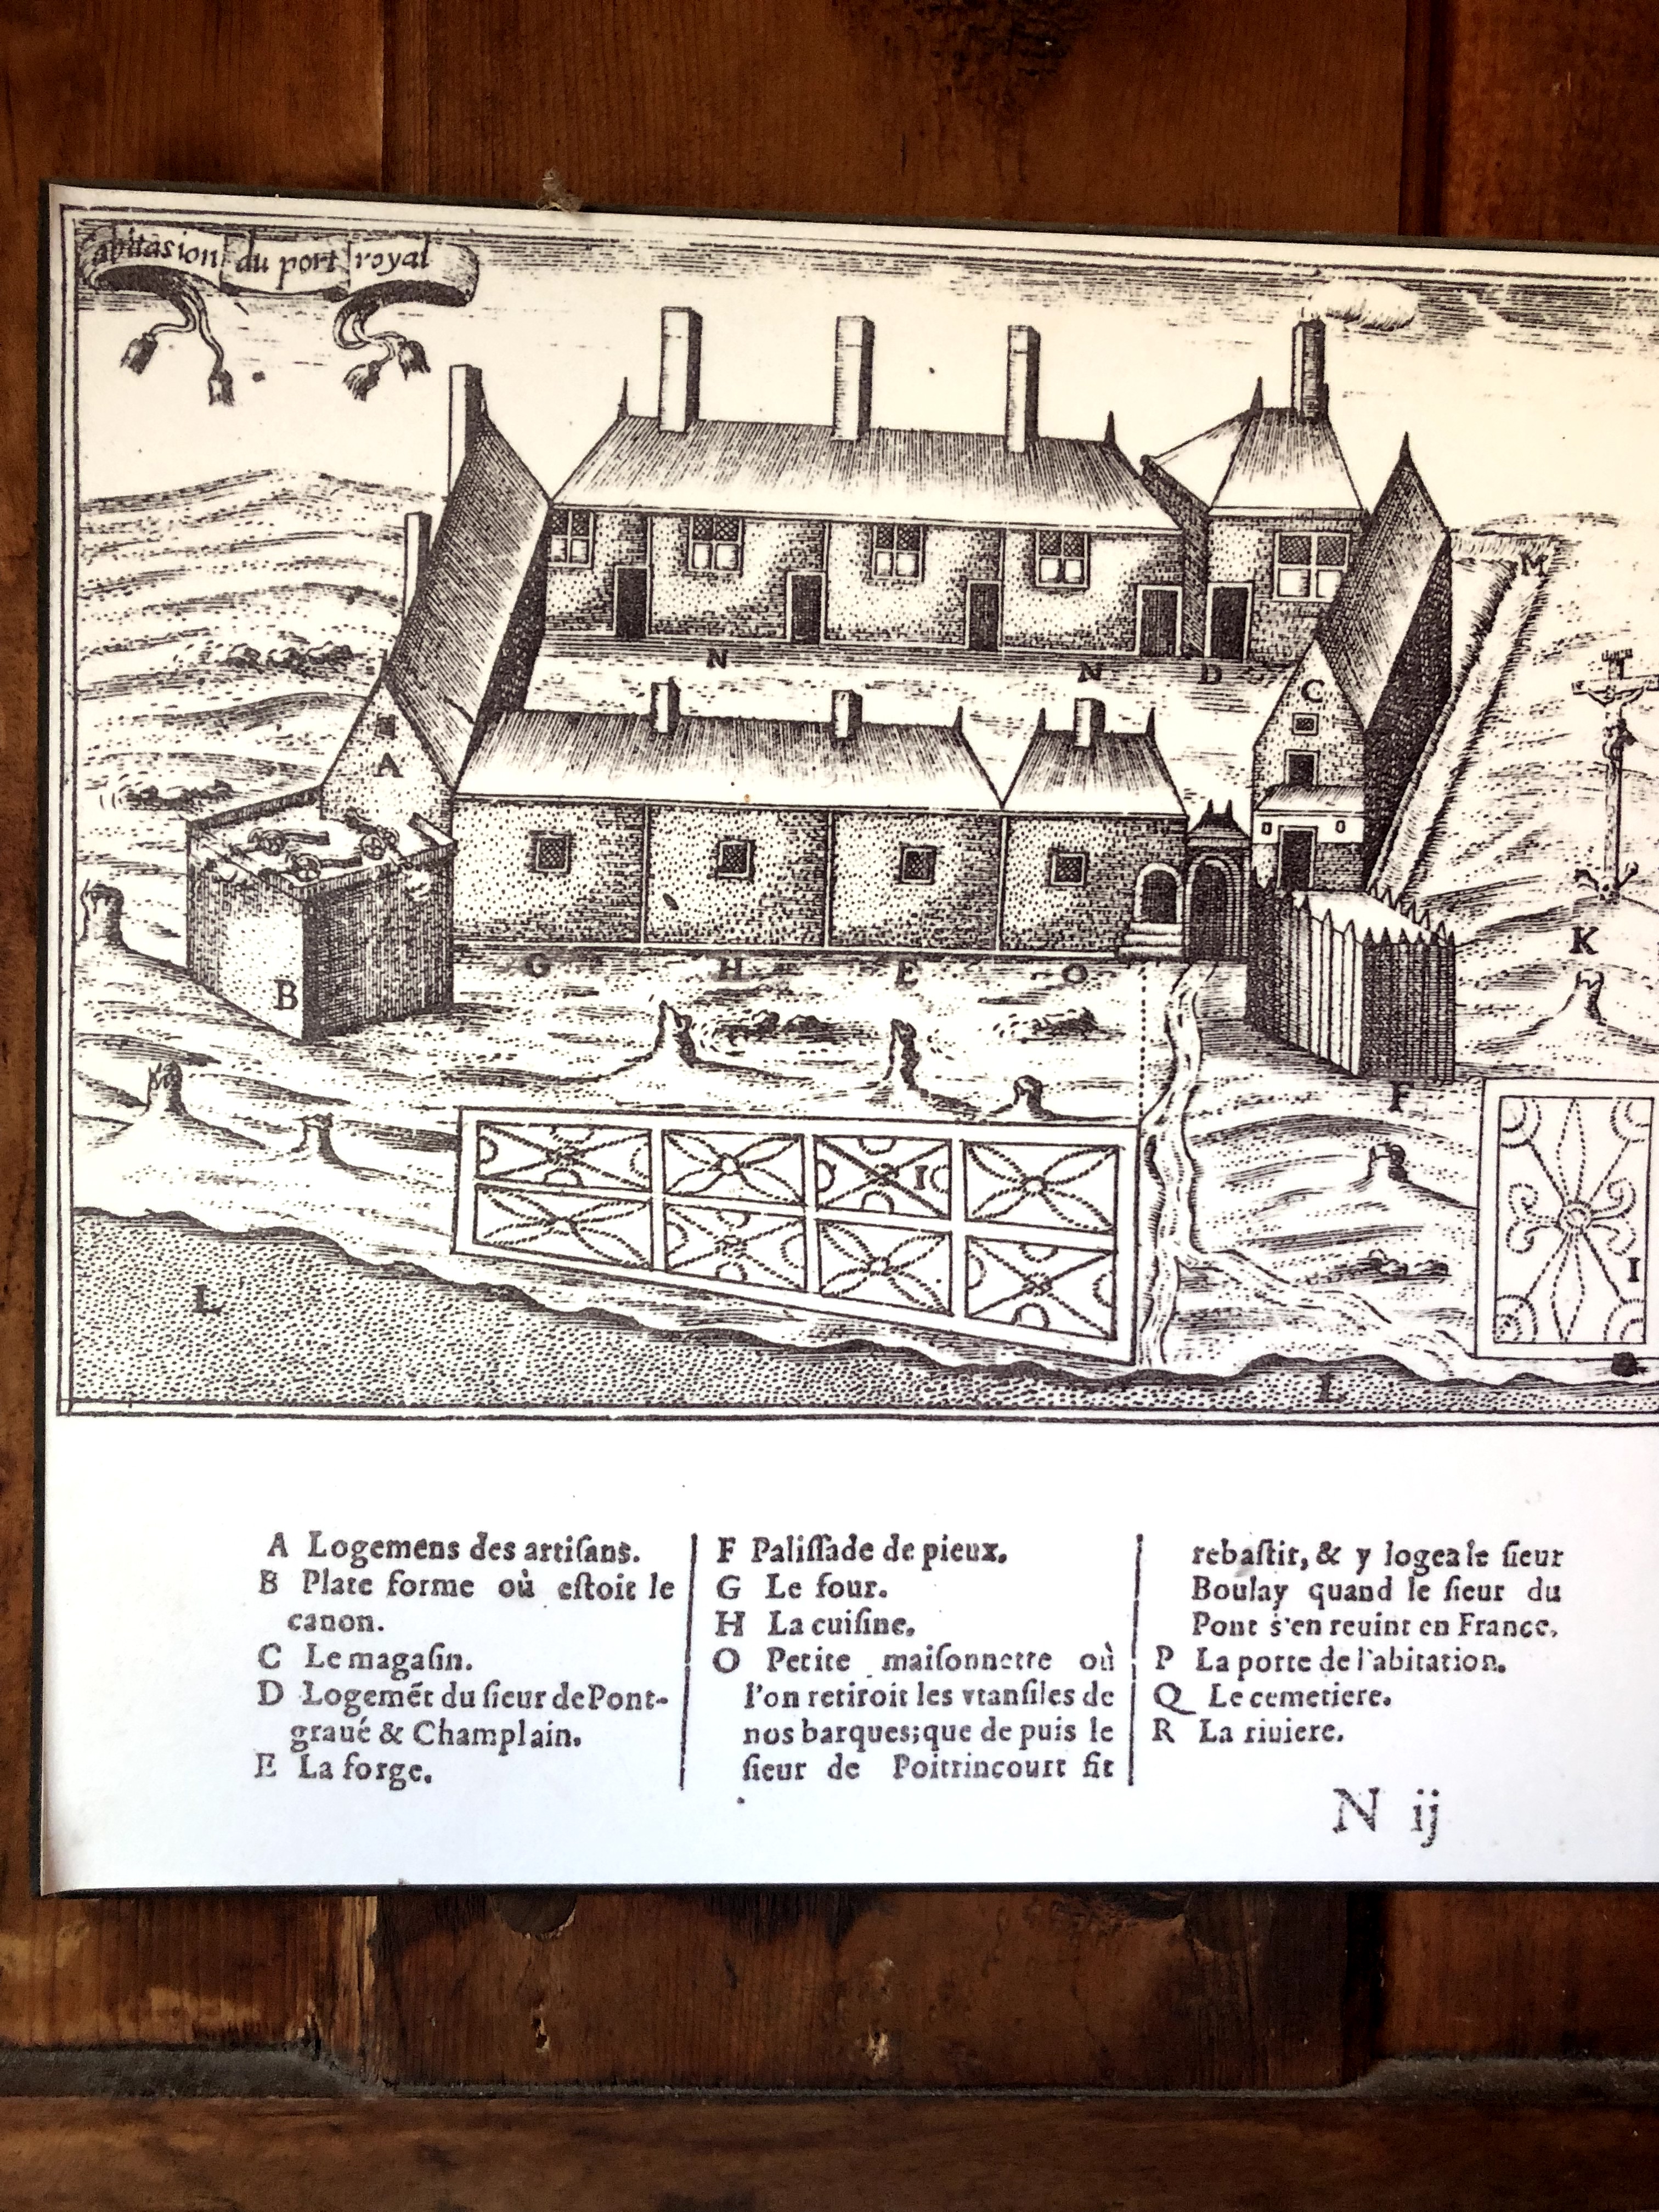 abitasion du port royal
M
N N D
C
A
K
B
G H E O
I
I
L
L
A Logemens des artiſans.
B Plate forme où eſtoit le
canon.
C Le magaſin.
D Logemẽt du ſieur de Pont-
graué & Champlain.
E La forge.
F Paliſſade de pieux.
G Le four.
H La cuiſine.
O Petite maiſonnette où
l'on retiroit les vtanſiles de
nos barques; que de puis le
ſieur de Poitrincourt fit
rebaſtir, & y logea le ſieur
Boulay quand le ſieur du
Pont s'en reuint en France.
P La porte de l'abitation.
Q Le cemetiere.
R La riuiere.
N ij